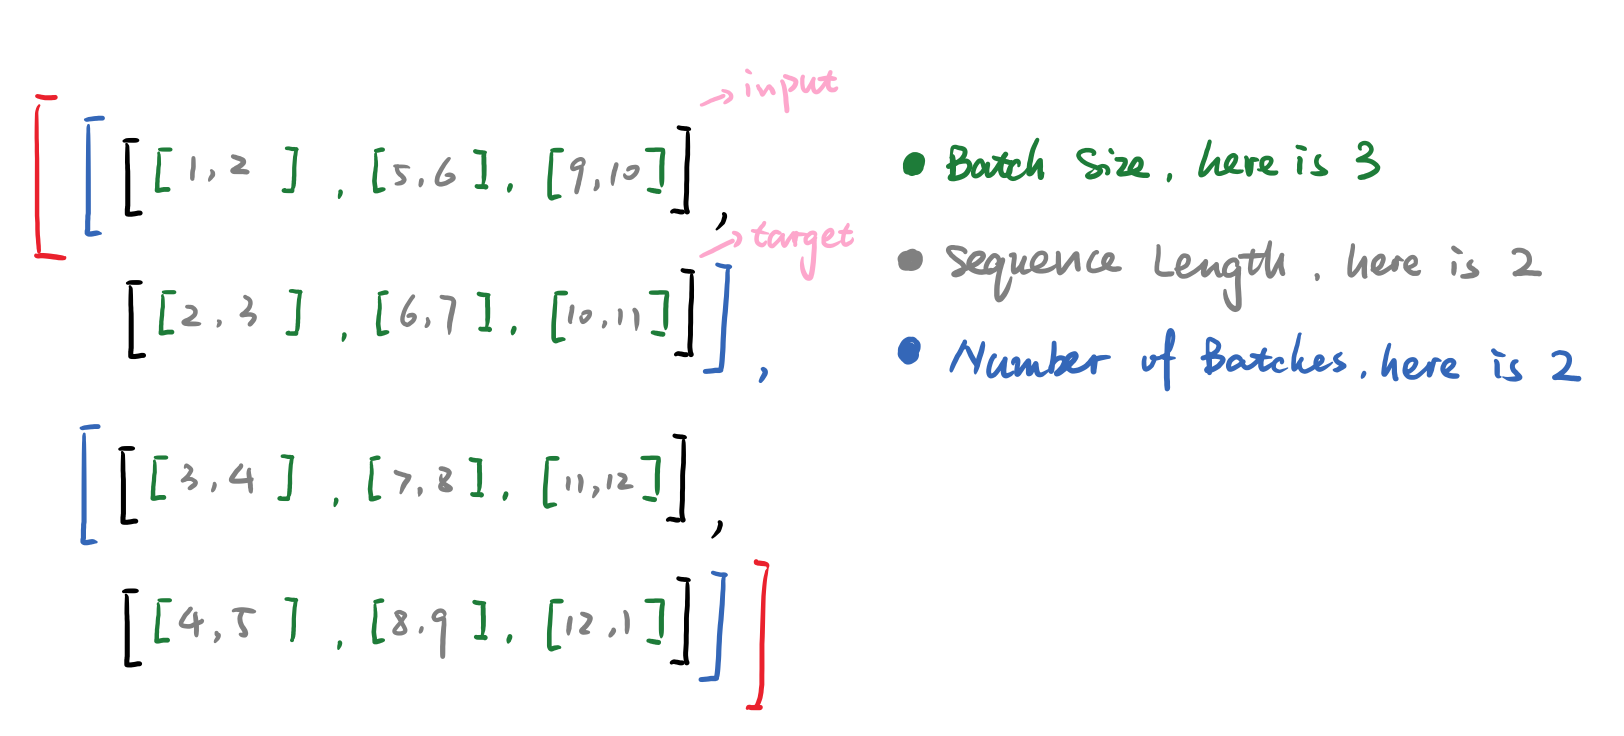 → input
[ [ [ [1, 2], [5, 6], [9, 10] ],
→ target
[ [2, 3], [6, 7], [10, 11] ] ],
[ [ [3, 4], [7, 8], [11, 12] ],
[ [4, 5], [8, 9], [12, 1] ] ] ]
• Batch Size, here is 3
• Sequence Length, here is 2
• Number of Batches, here is 2